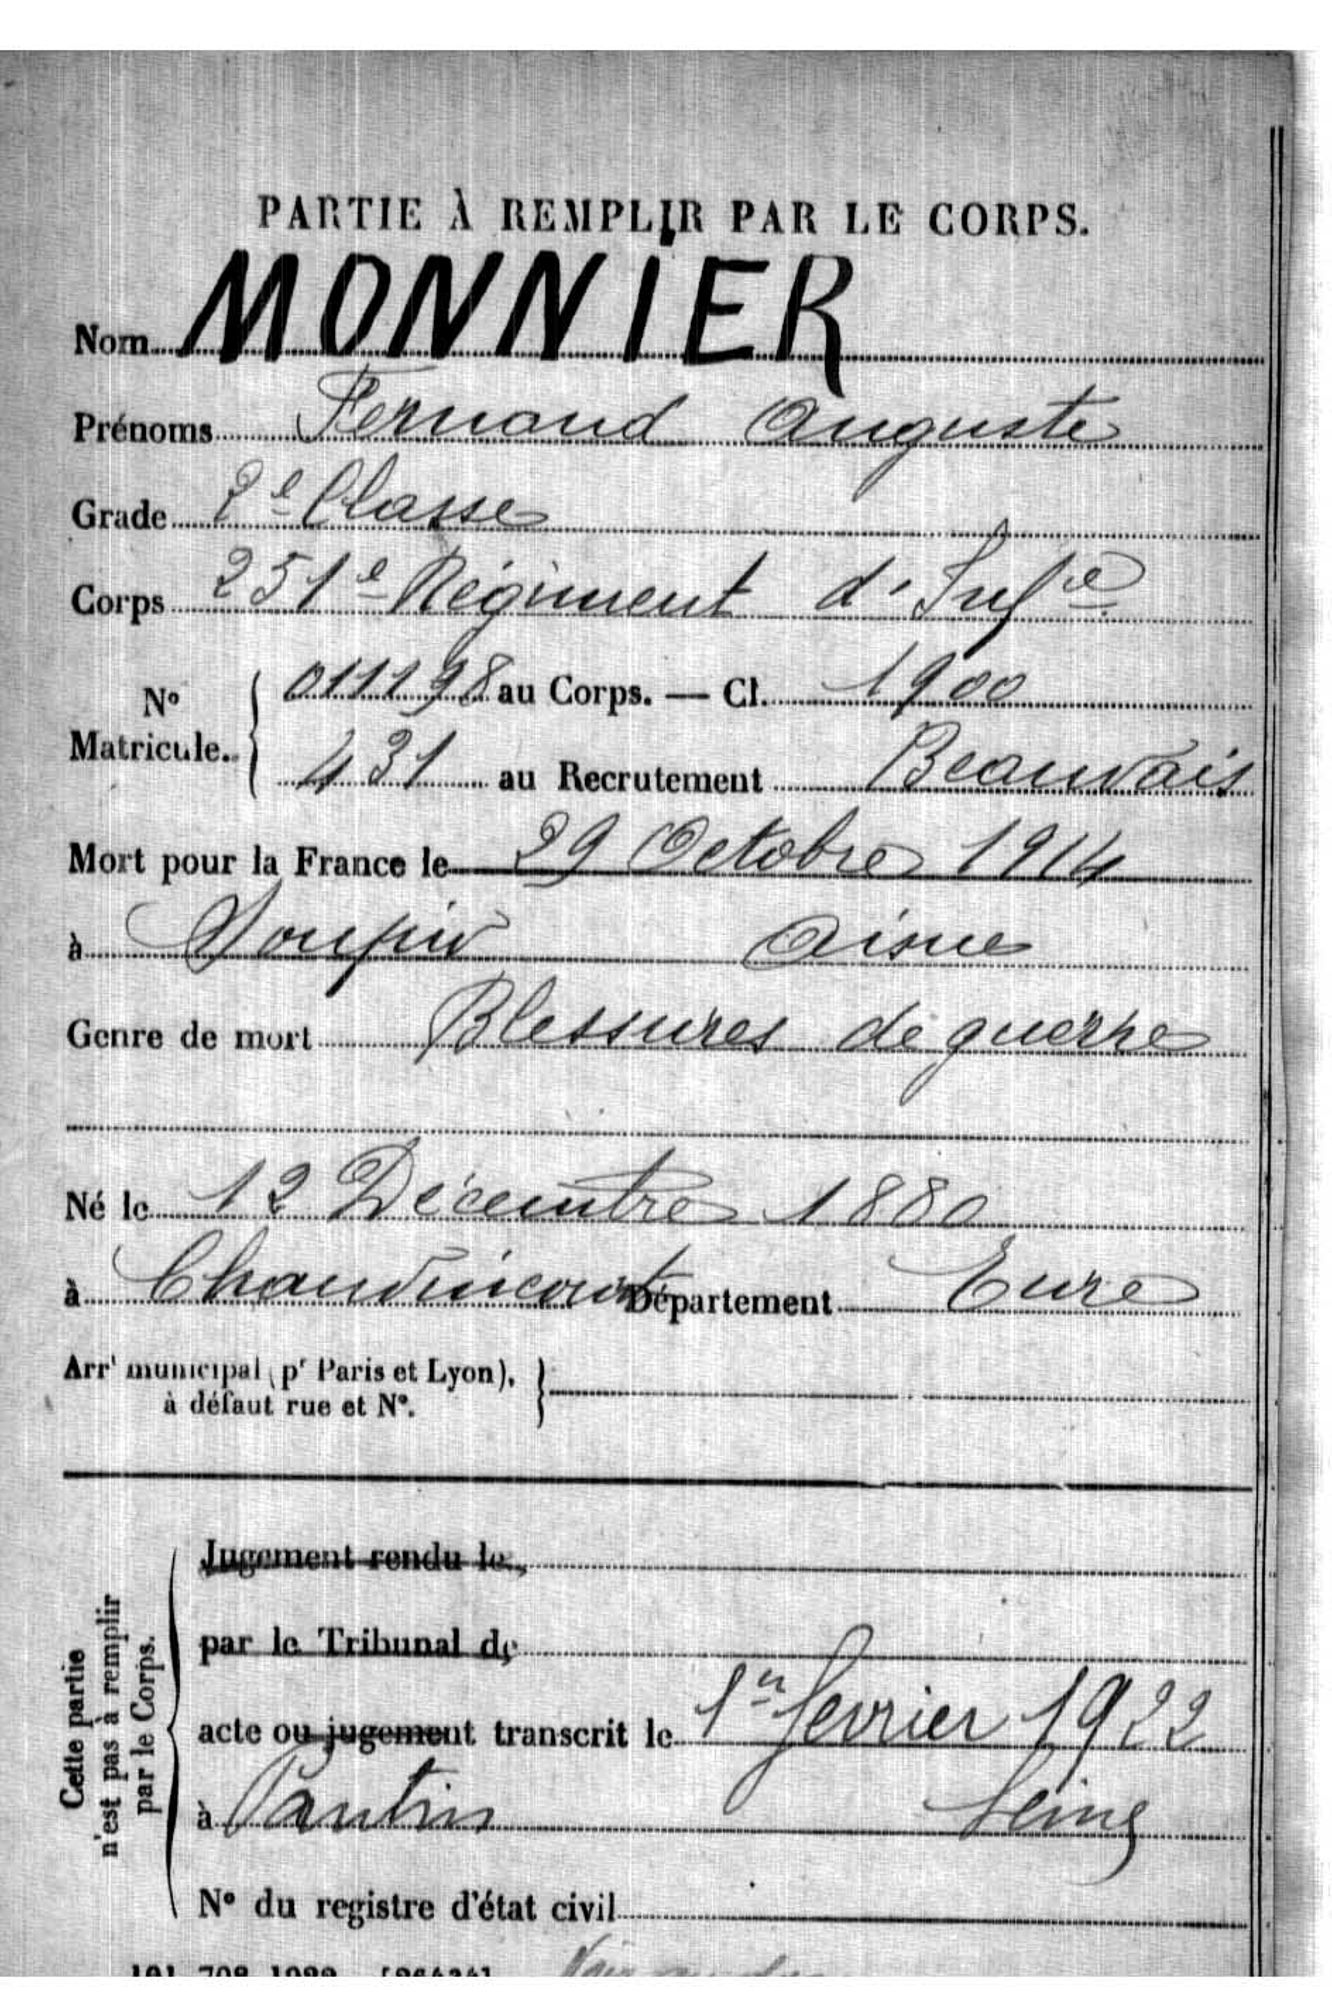 PARTIE À REMPLIR PAR LE CORPS.
Nom MONNIER
Prénoms Fernand Auguste
Grade 2e Classe
Corps 251e Régiment d'Infie
No Matricule. { 011198 au Corps. — Cl. 1900
431 au Recrutement Beauvais
Mort pour la France le 29 Octobre 1914
à Soupir Aisne
Genre de mort Blessures de guerre
Né le 12 Décembre 1880
à Chauvincourt Département Eure
Arrt municipal (pr Paris et Lyon),
à défaut rue et No.
Cette partie
n'est pas à remplir
par le Corps.
Jugement rendu le
par le Tribunal de
acte ou jugement transcrit le 1er février 1922
à Pantin Seine
No du registre d'état civil